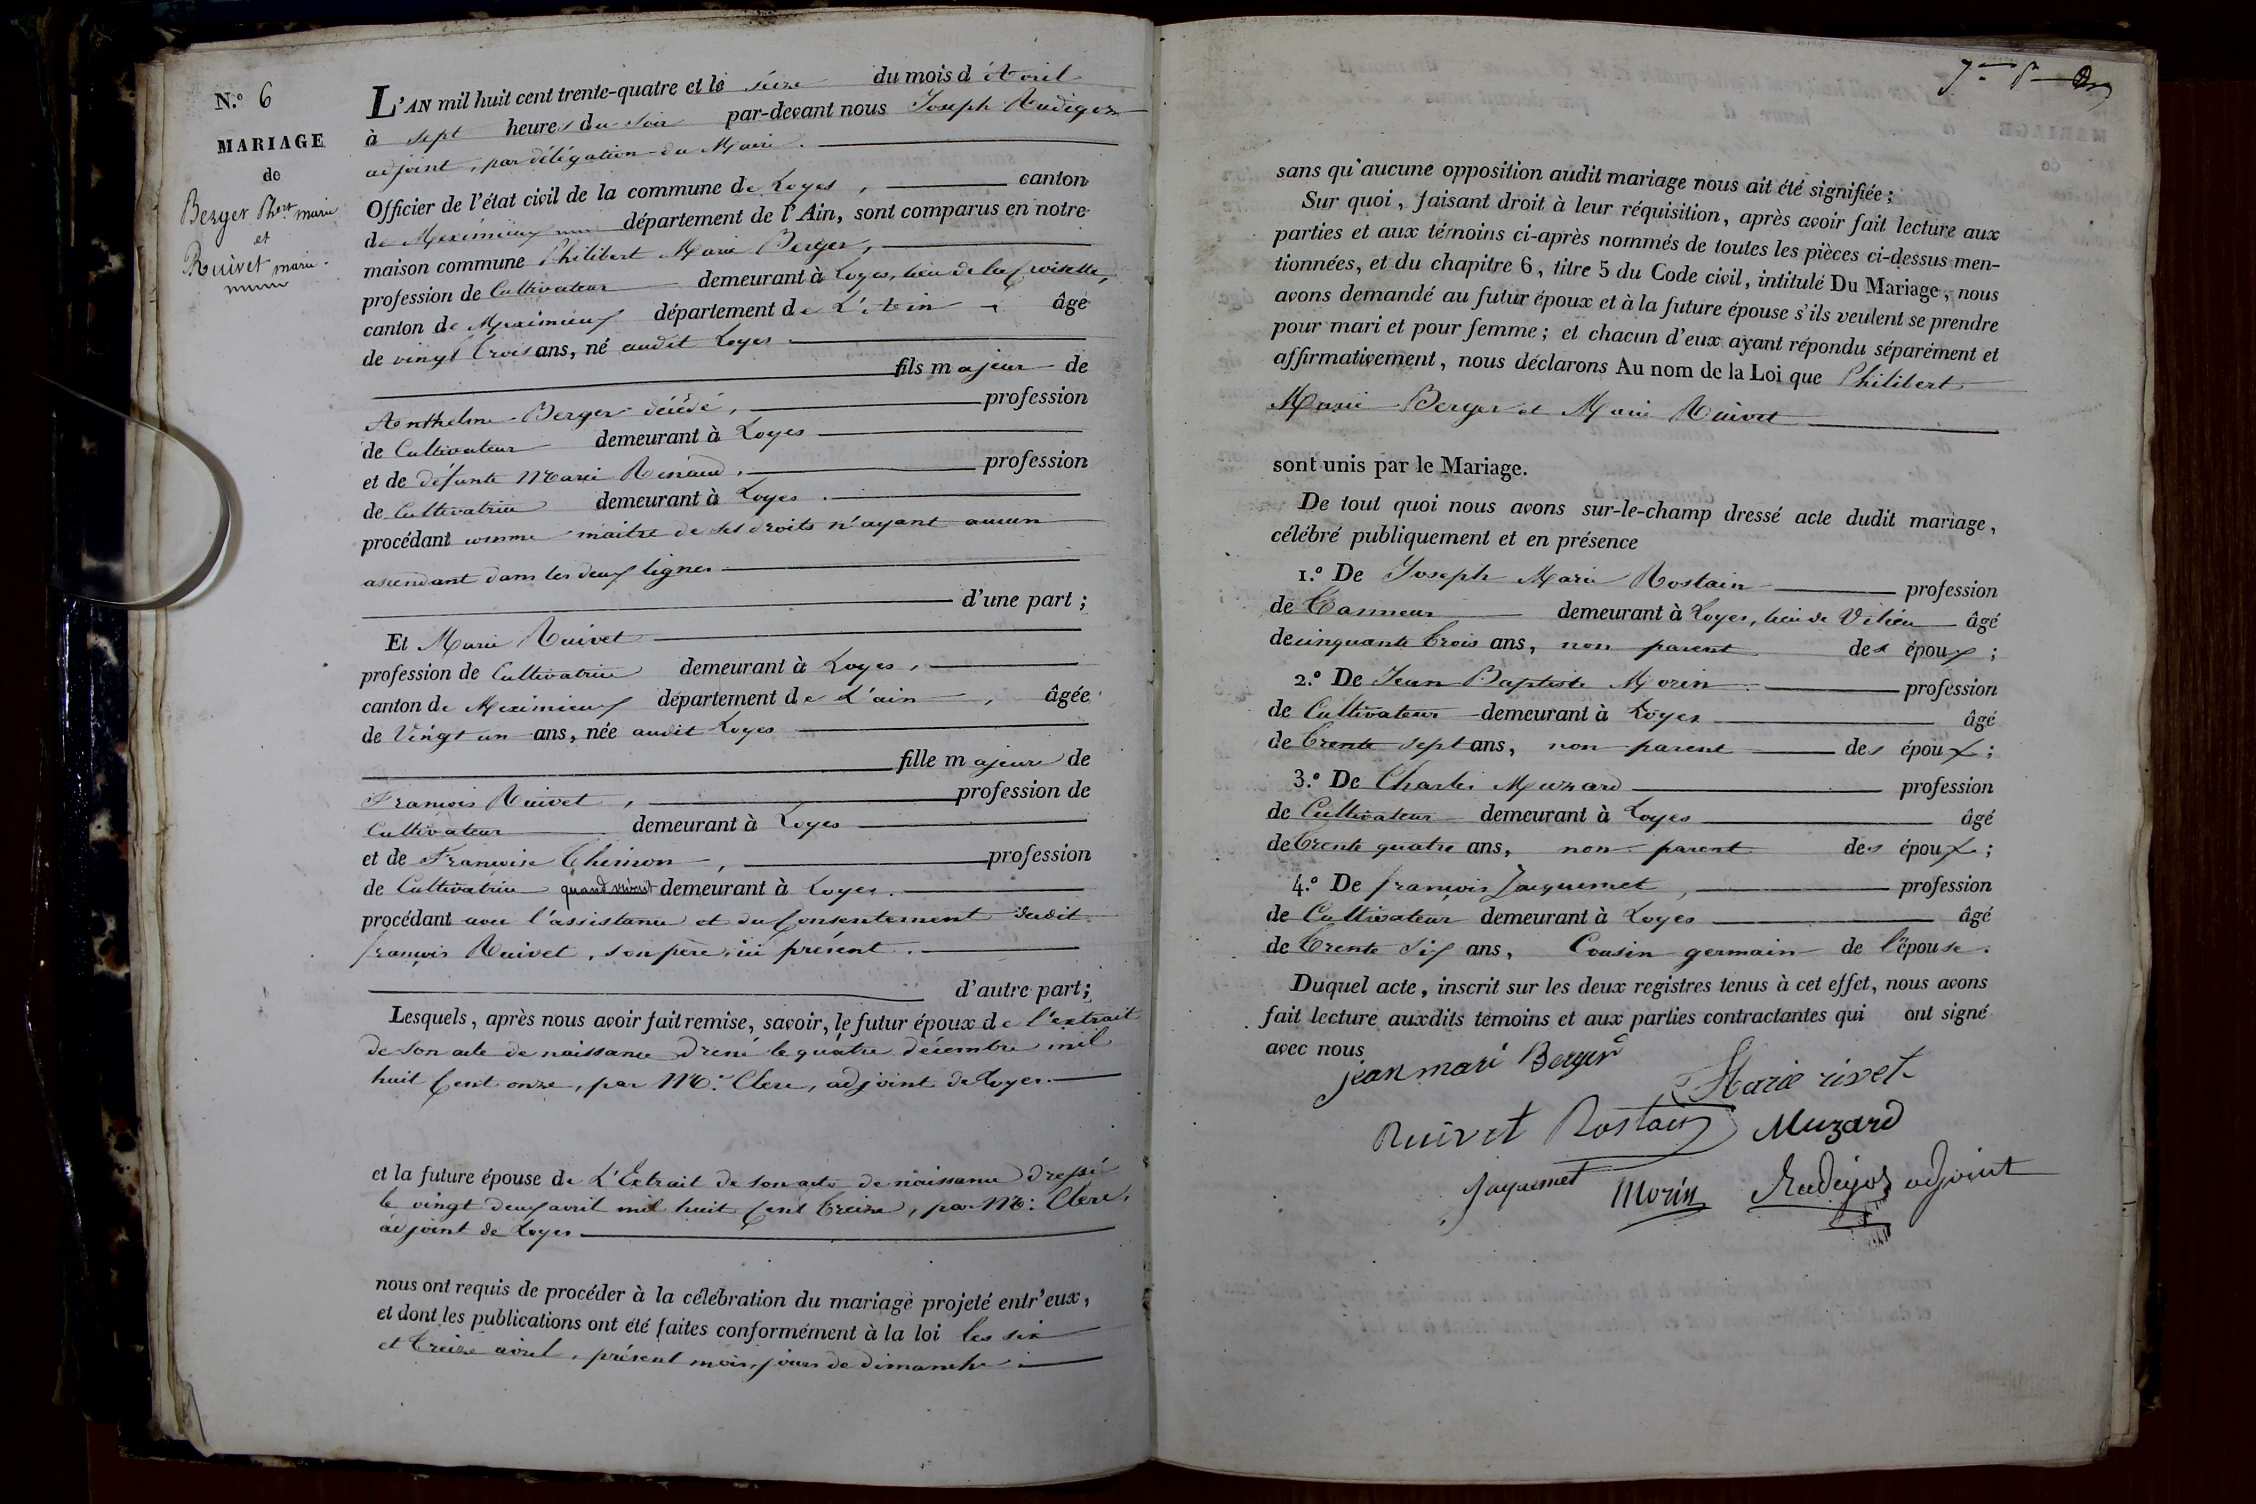 N.º 6
MARIAGE
de
Berger Phert marie
et
Ruivet marie.
L'AN mil huit cent trente-quatre et le seize du mois d'Avril
à sept heures du soir par-devant nous Joseph Rudigoz
adjoint, par délégation du Maire.
Officier de l'état civil de la commune de Loyes, canton
de Meximieux département de l'Ain, sont comparus en notre
maison commune Philibert Marie Berger,
profession de Cultivateur demeurant à Loyes, lieu de la Croisette,
canton de Meximieux département de L'Ain, âgé
de vingt trois ans, né audit Loyes
fils majeur de
Anthelme Berger décédé, profession
de Cultivateur demeurant à Loyes
et de défunte Marie Renaud, profession
de Cultivatrice demeurant à Loyes.
procédant comme maitre de ses droits n'ayant aucun
ascendant dans les deux lignes
d'une part;
Et Marie Ruivet
profession de Cultivatrice demeurant à Loyes,
canton de Meximieux département de L'ain, âgée
de Vingt un ans, née audit Loyes
fille majeure de
François Ruivet, profession de
Cultivateur demeurant à Loyes
et de Françoise Thimon, profession
de Cultivatrice quand vivait demeurant à Loyes.
procédant avec l'assistance et du Consentement dudit
françois Ruivet, son père, ici présent.
d'autre part;
Lesquels, après nous avoir fait remise, savoir, le futur époux de l'extrait
de son acte de naissance dressé le quatre décembre mil
huit Cent onze, par Mr. Clerc, adjoint de Loyes.
et la future épouse de L'Extrait de son acte de naissance dressé
le vingt deux avril mil huit Cent treize, par Mr: Clerc,
adjoint de Loyes
nous ont requis de procéder à la célébration du mariage projeté entr'eux,
et dont les publications ont été faites conformément à la loi les six
et treize avril, présent mois, jours de dimanche.
sans qu'aucune opposition audit mariage nous ait été signifiée;
Sur quoi, faisant droit à leur réquisition, après avoir fait lecture aux
parties et aux témoins ci-après nommés de toutes les pièces ci-dessus men-
tionnées, et du chapitre 6, titre 5 du Code civil, intitulé Du Mariage, nous
avons demandé au futur époux et à la future épouse s'ils veulent se prendre
pour mari et pour femme; et chacun d'eux ayant répondu séparément et
affirmativement, nous déclarons Au nom de la Loi que Philibert
Marie Berger et Marie Ruivet
sont unis par le Mariage.
De tout quoi nous avons sur-le-champ dressé acte dudit mariage,
célébré publiquement et en présence
1.º De Joseph Marie Rostain profession
de Tanneur demeurant à Loyes, lieu de Vilieu âgé
de cinquante trois ans, non parent des époux;
2.º De Jean Baptiste Morin profession
de Cultivateur demeurant à Loyes âgé
de trente sept ans, non parent des époux;
3.º De Charles Muzard profession
de Cultivateur demeurant à Loyes âgé
de trente quatre ans, non parent des époux;
4.º De françois Jacquemet, profession
de Cultivateur demeurant à Loyes âgé
de trente six ans, Cousin germain de l'épouse.
Duquel acte, inscrit sur les deux registres tenus à cet effet, nous avons
fait lecture auxdits témoins et aux parties contractantes qui ont signé
avec nous
jean mari Berger
Marie rivet
Ruivet Rostain Muzard
Jaquemet Morin Rudigoz adjoint